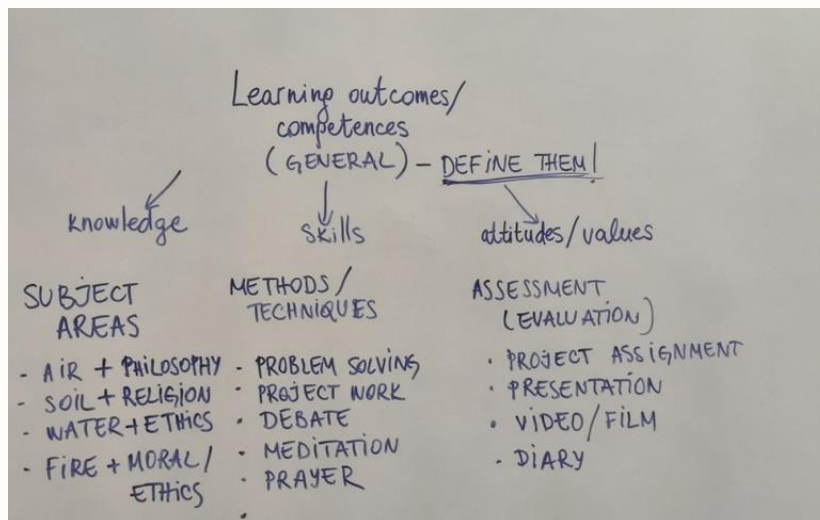 Learning outcomes/
competences
(GENERAL) - DEFINE THEM!
knowledge
skills
attitudes/values
SUBJECT
AREAS
- AIR + PHILOSOPHY
- SOIL + RELIGION
- WATER + ETHICS
- FIRE + MORAL/
ETHICS
METHODS/
TECHNIQUES
- PROBLEM SOLVING
- PROJECT WORK
• DEBATE
• MEDITATION
• PRAYER
•
ASSESSMENT
(EVALUATION)
• PROJECT ASSIGNMENT
• PRESENTATION
• VIDEO/FILM
- DIARY